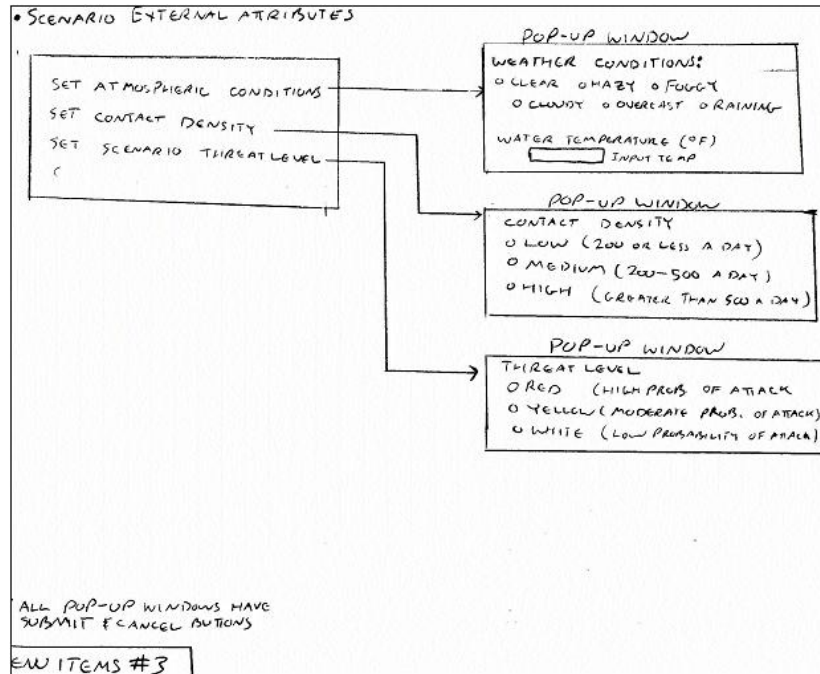 • SCENARIO EXTERNAL ATTRIBUTES
SET ATMOSPHERIC CONDITIONS
SET CONTACT DENSITY
SET SCENARIO THREAT LEVEL
POP-UP WINDOW
WEATHER CONDITIONS:
O CLEAR O HAZY O FOGGY
O CLOUDY O OVERCAST O RAINING
WATER TEMPERATURE (°F)
INPUT TEMP
POP-UP WINDOW
CONTACT DENSITY
O LOW (200 OR LESS A DAY)
O MEDIUM (200-500 A DAY)
O HIGH (GREATER THAN 500 A DAY)
POP-UP WINDOW
THREAT LEVEL
O RED (HIGH PROB OF ATTACK
O YELLOW (MODERATE PROB. OF ATTACK)
O WHITE (LOW PROBABILITY OF ATTACK)
ALL POP-UP WINDOWS HAVE
SUBMIT & CANCEL BUTTONS
ENU ITEMS #3